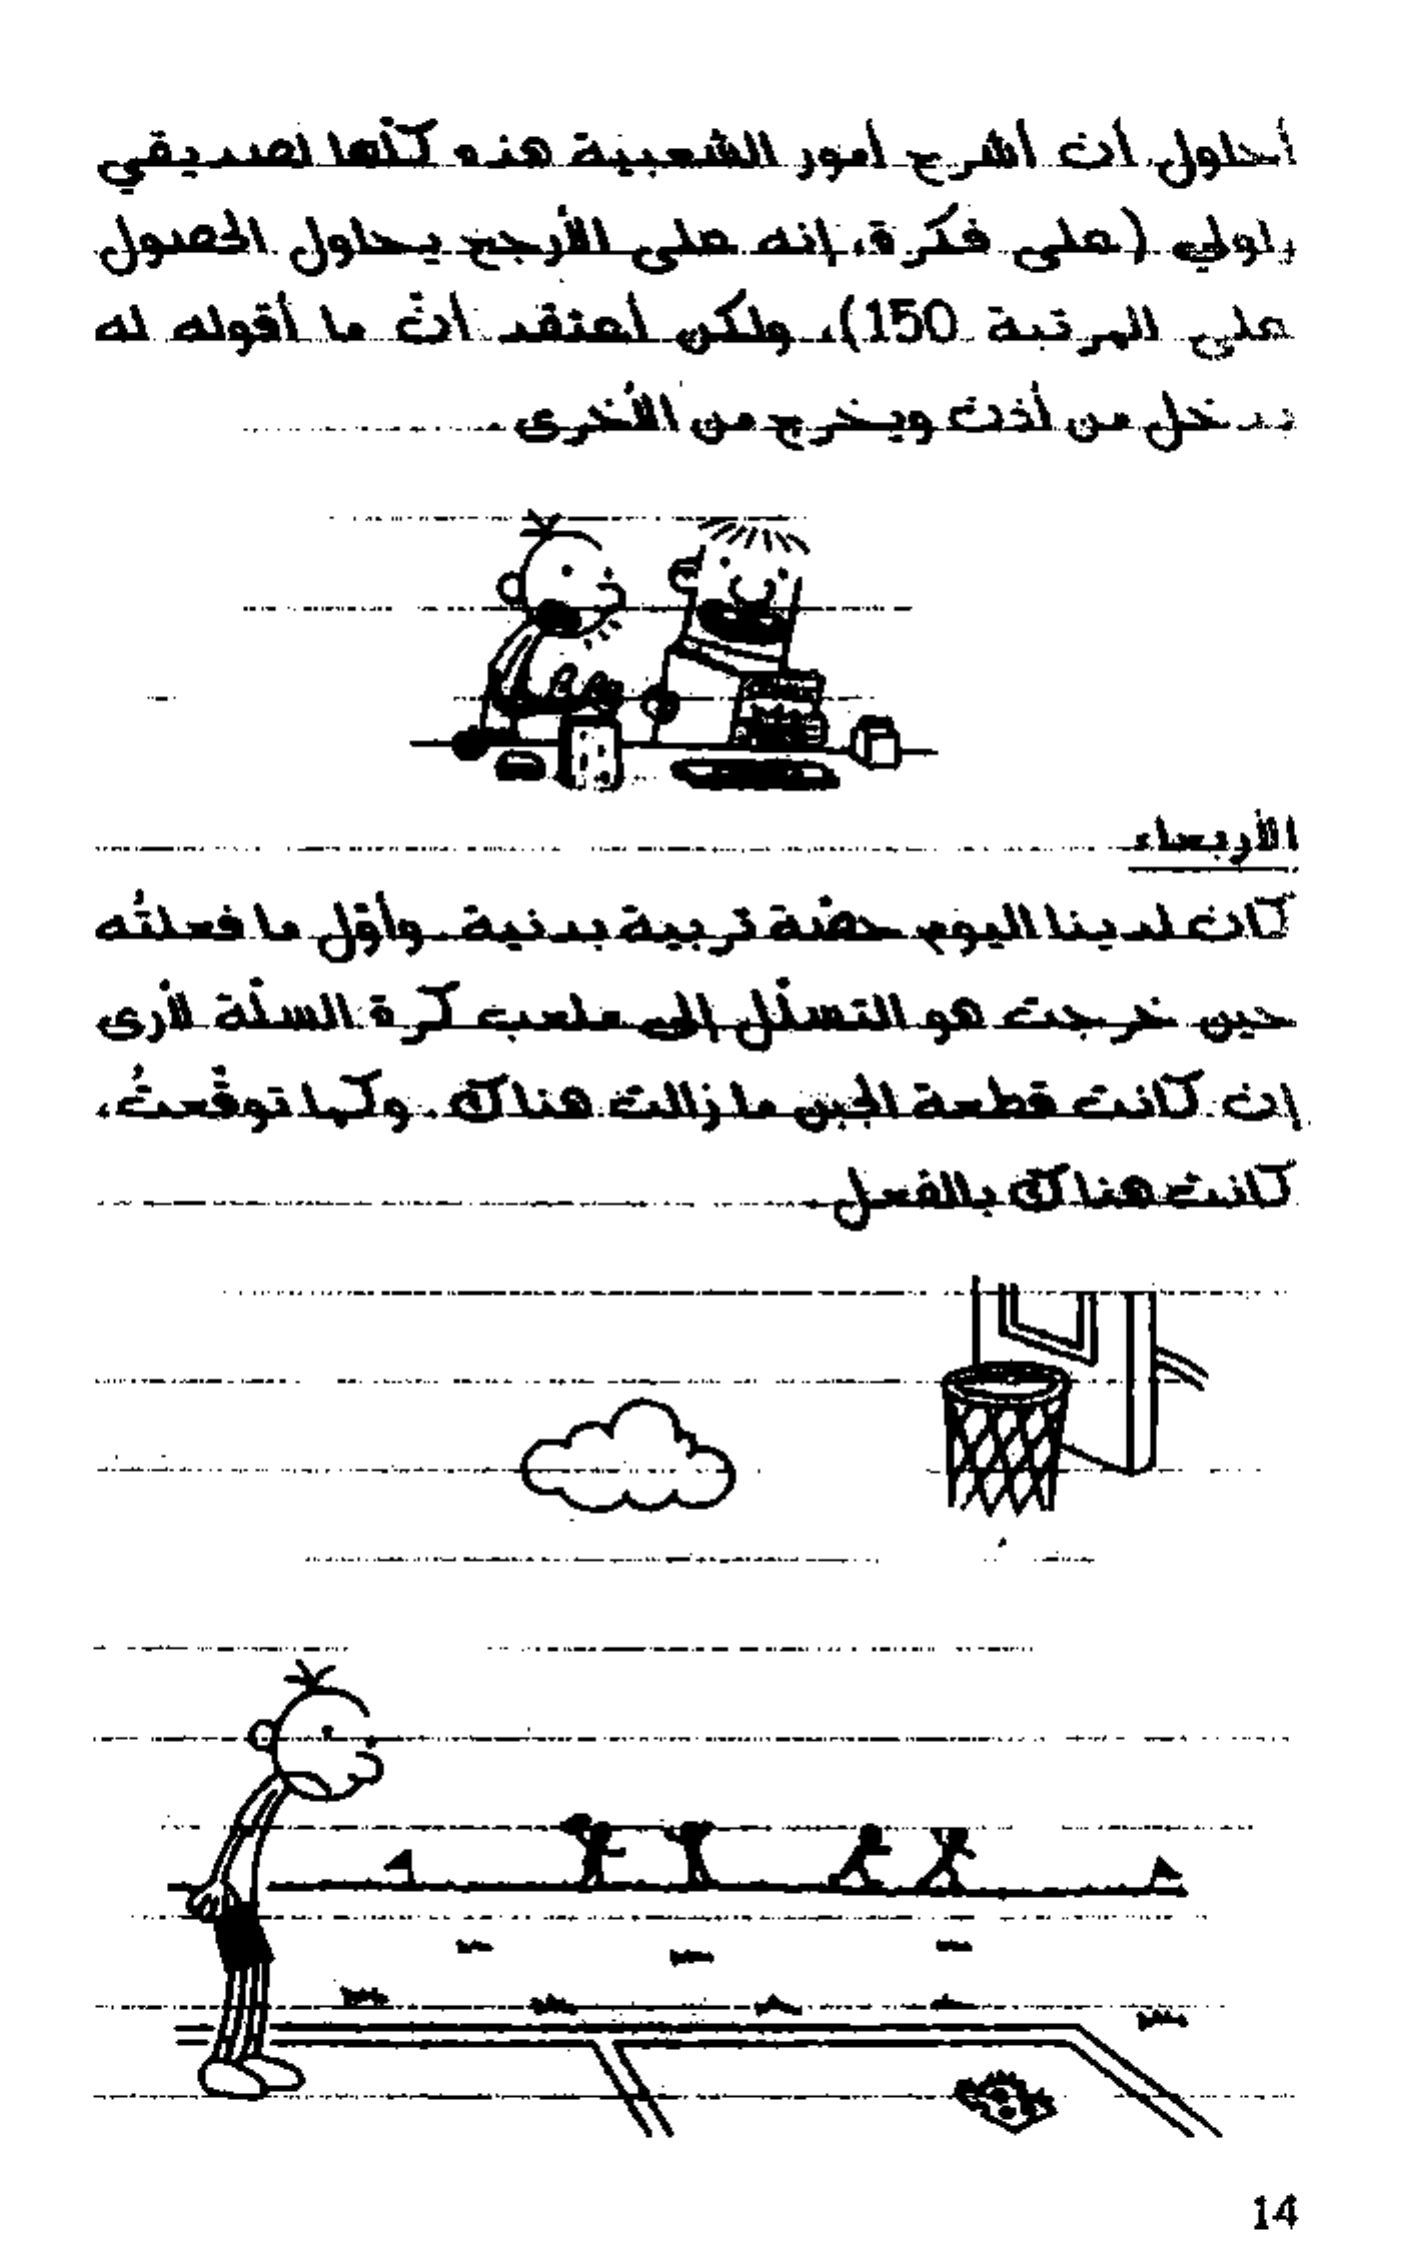 أحاول أن أشرح أمور الشعبية هذه كلّها لصديقي
راولي (على فكرة، إنه على الأرجح يحاول الحصول
على المرتبة 150)، ولكن أعتقد أنّ ما أقوله له
يدخل من أذن ويخرج من الأخرى.
الأربعاء
كان لدينا اليوم حصّة تربية بدنية. وأوّل ما فعلتُه
حين خرجت هو التسلّل إلى ملعب كرة السلّة لأرى
إن كانت قطعة الجبن ما زالت هناك. وكما توقّعتُ،
كانت هناك بالفعل.
14